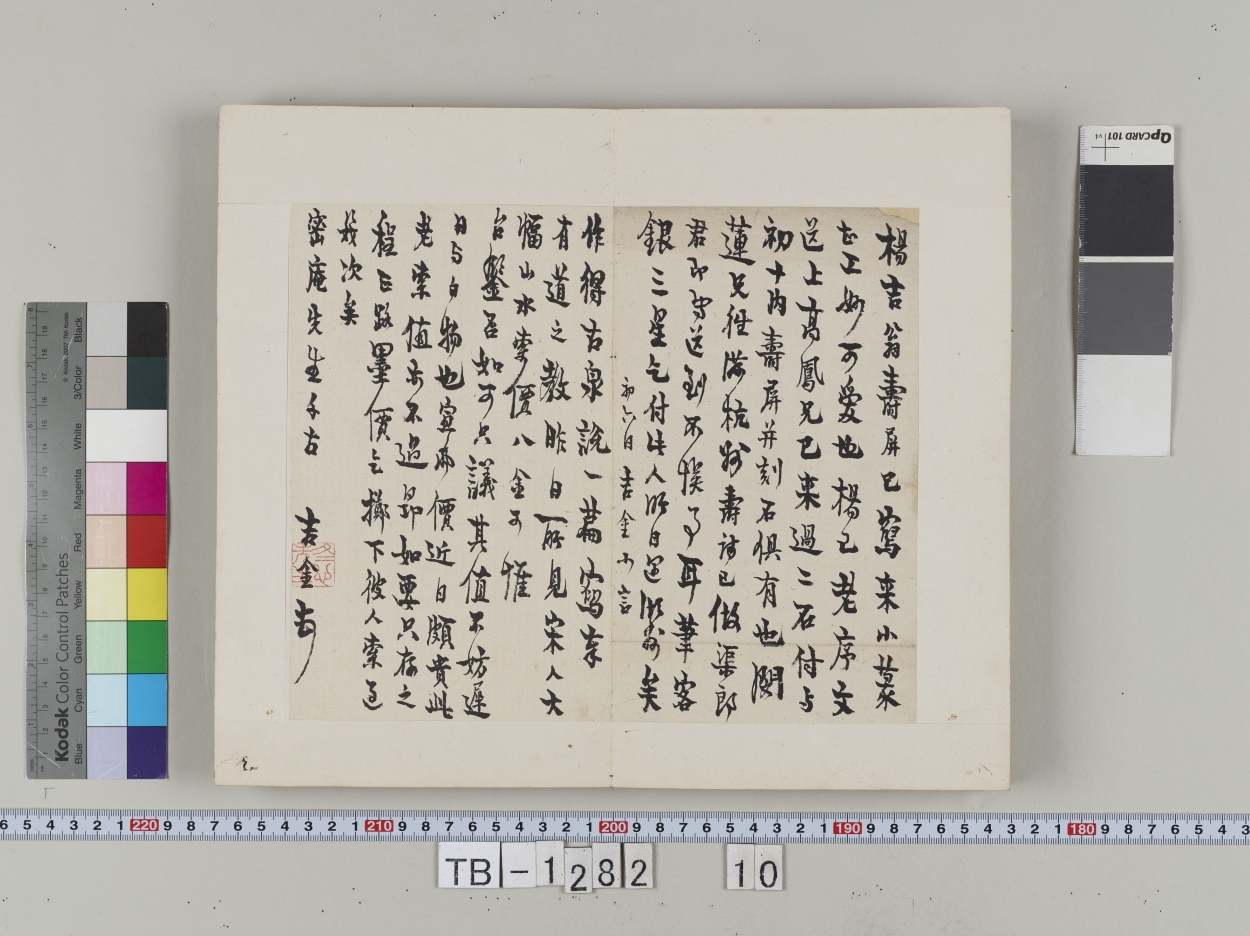 楊吉翁壽屏已寫來小篆
甚工妙可愛也楊已老序文
送上高鳳兄已來過二石付与
初十內壽屏并刻石俱有也
蓮兄往游杭州壽詩已做渠郎
君即寄送到不悞事耳筆客
銀三星乞付此人明日還湖州矣
初六日 吉金小言
作得古泉說一篇寫奉
有道之教昨日一所見宋人大
幅山水索價八金可惟
台鑒否如可只議其值不妨遲
日与白物也宣布價近日頗貴此
老索值亦不過昂如要只存之
程臣路墨價乞擲下彼人索過
幾次矣
密庵先生千古
吉金
TB-1282 10
Kodak Color Control Patches
© Kodak, 2007 TM: Kodak
Blue Cyan Green Yellow Red Magenta White 3/Color Black
QPCARD 101 v4
6 5 4 3 2 1 220 9 8 7 6 5 4 3 2 1 210 9 8 7 6 5 4 3 2 1 200 9 8 7 6 5 4 3 2 1 190 9 8 7 6 5 4 3 2 1 180 9 8 7 6 5 4 3